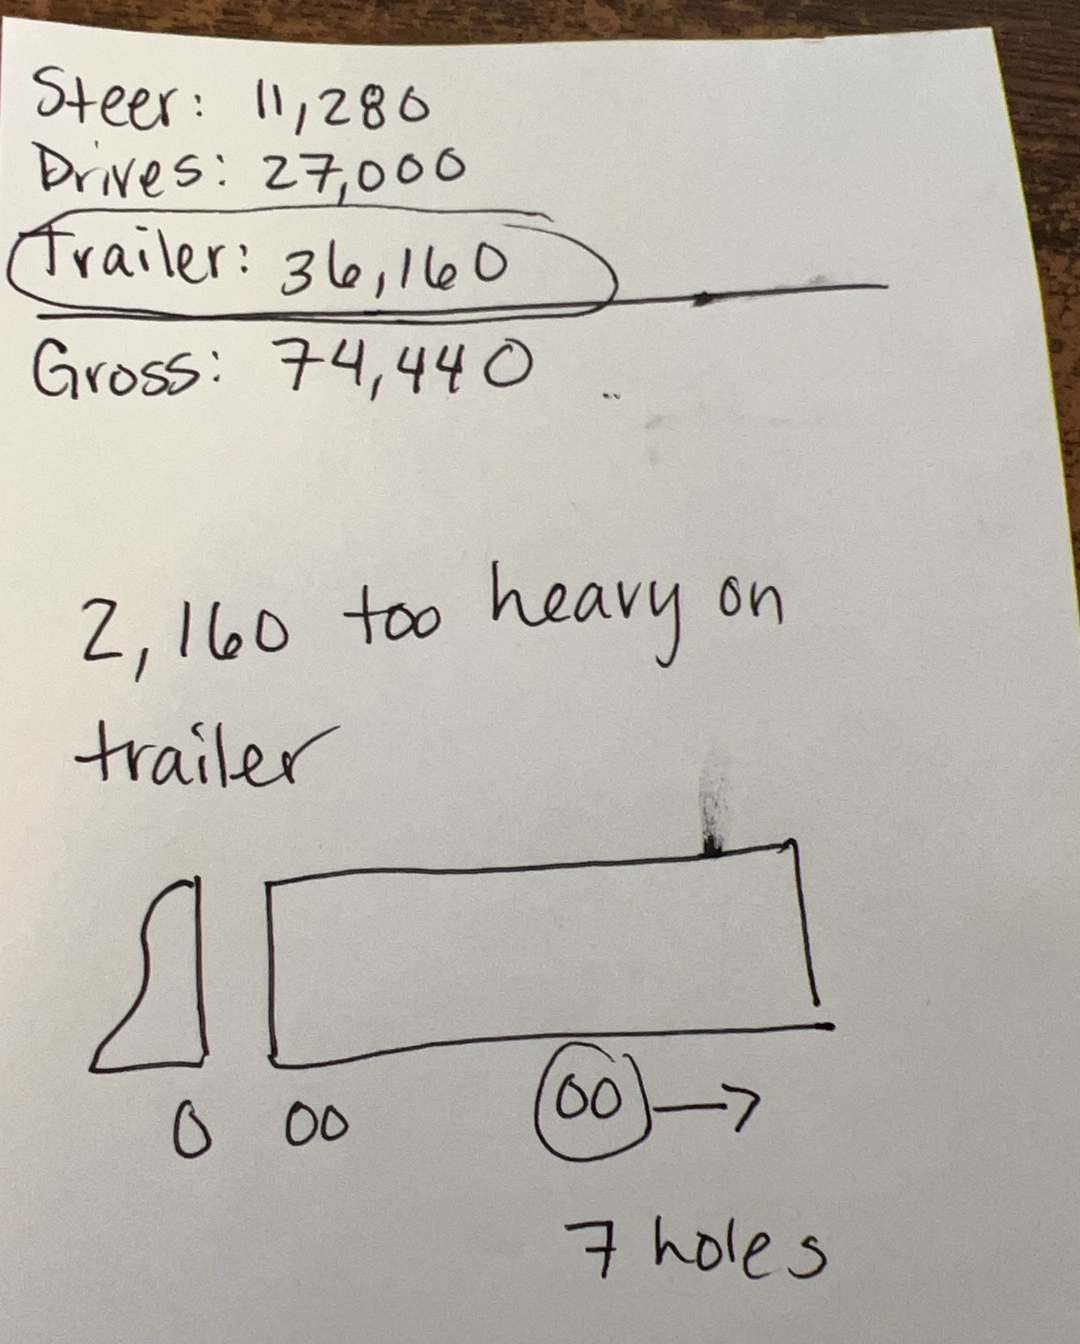 Steer: 11,280
Drives: 27,000
Trailer: 36,160
Gross: 74,440
2,160 too heavy on
trailer
0 00 00
7 holes